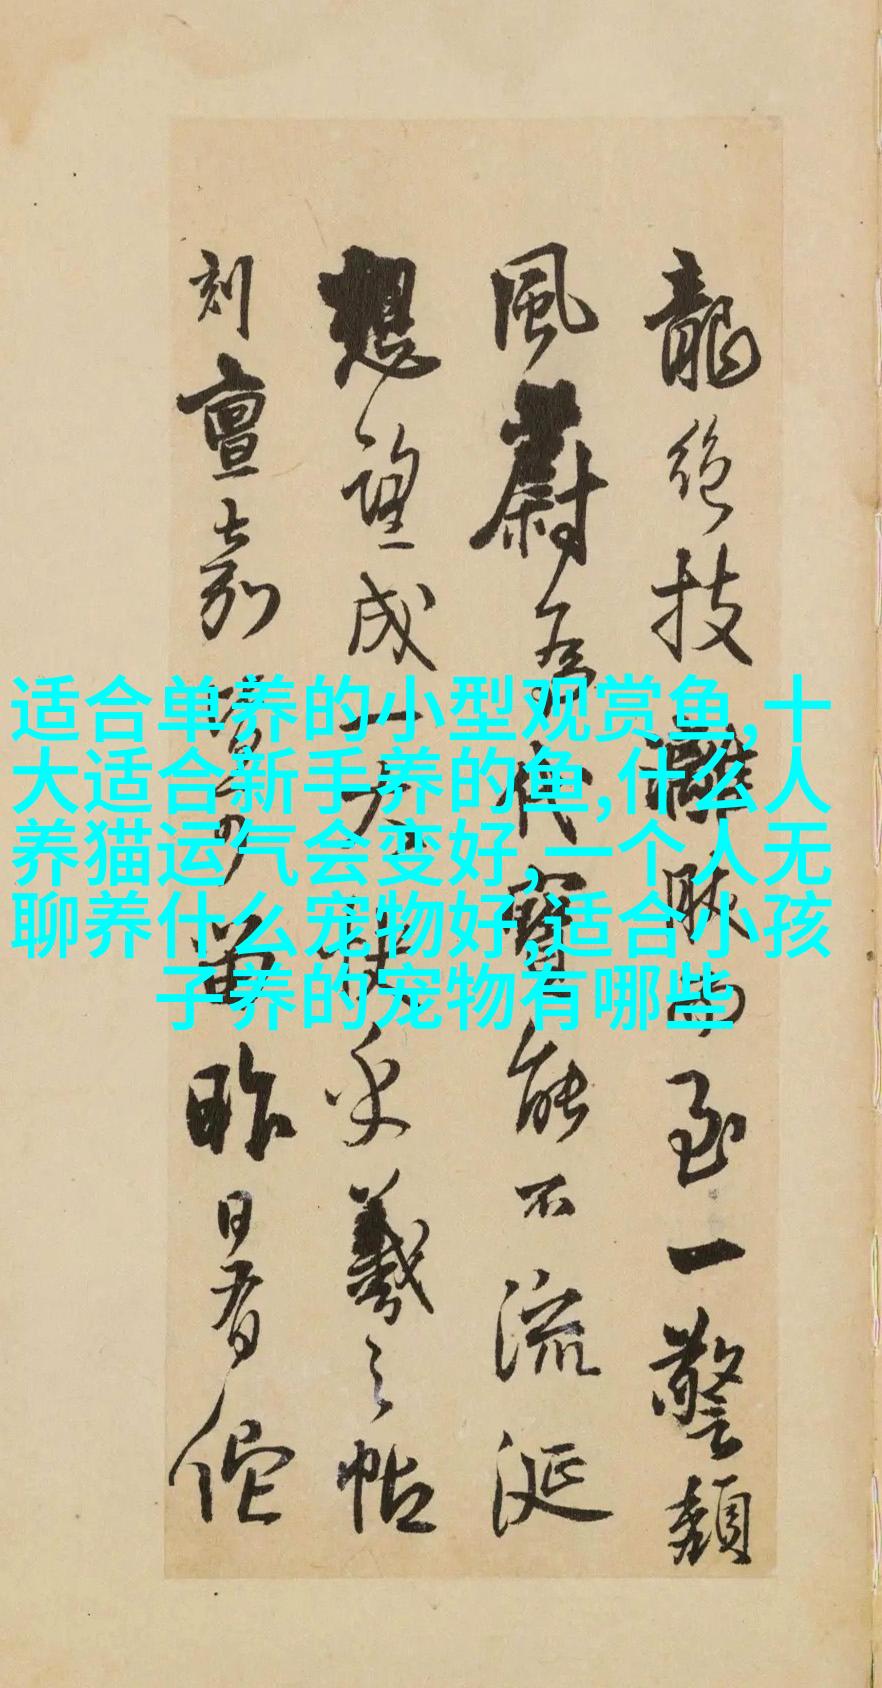 龍絕技 耿而至一警類
風蔚為代寶能不流涎
想望成一 乎羲之帖
刻亶嘉 昨日看
适合单养的小型观赏鱼,十
大适合新手养的鱼,什么人
养猫运气会变好,一个人无
聊养什么宠物好,适合小孩
子养的宠物有哪些